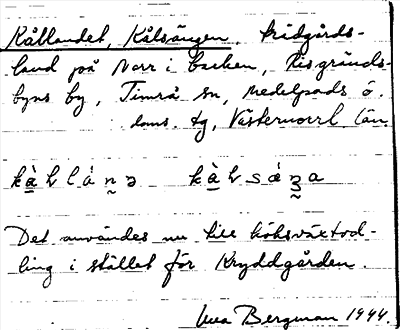 Kållandet, Kålsängen, trädgårds-
land på Norr i backen, Risgränds-
byns by, Timrå sn, Medelpads ö.
doms. tg, Västernorrl. län.
Det användes nu till köksväxtod-
ling i stället för Kryddgården.
Bergman 1944.